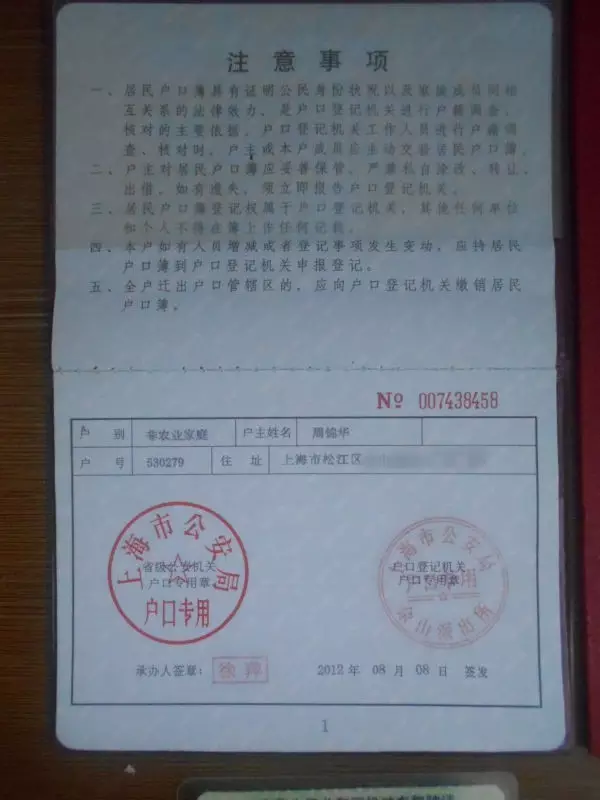 注意事项
一、居民户口簿具有证明公民身份状况以及家庭成员间相
互关系的法律效力，是户口登记机关进行户籍调查、
核对的主要依据。户口登记机关工作人员进行户籍调
查、核对时，户主或本户成员应主动交验居民户口簿。
二、户主对居民户口簿应妥善保管，严禁私自涂改、转让、
出借。如有遗失，须立即报告户口登记机关。
三、居民户口簿登记权属于户口登记机关，其他任何单位
和个人不得在簿上作任何记载。
四、本户如有人员增减或者登记事项发生变动，应持居民
户口簿到户口登记机关申报登记。
五、全户迁出户口管辖区的，应向户口登记机关缴销居民
户口簿。
№ 007438458
户 别 非农业家庭 户主姓名 周锦华
户 号 530279 住 址 上海市松江区
上海市公安局
省级公安机关
户口专用章
户口专用
海市公安局
户口登记机关
户口专用章
山派出所
承办人签章： 徐萍 2012年 08月 08日 签发
1